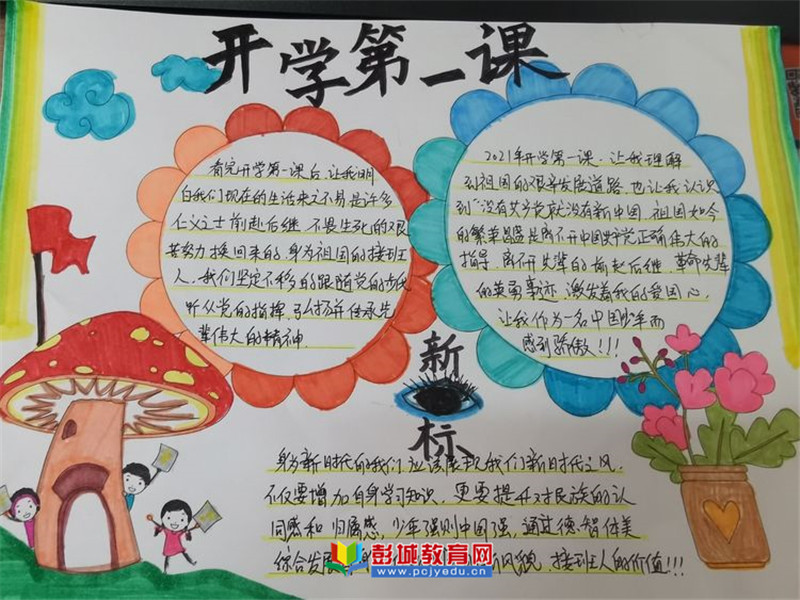 开学第一课
看完开学第一课后,让我明
白我们现在的生活来之不易,是许多
仁义之士前赴后继、不畏生死的艰
苦努力换回来的,身为祖国的接班
人,我们坚定不移的跟随党的步伐
听从党的指挥,弘扬并传承先
辈伟大的精神.
2021年开学第一课,让我理解
到祖国的艰辛发展道路,也让我认识
到“没有共产党就没有新中国,祖国如今
的繁荣昌盛是离不开中国共产党正确伟大的
指导,离不开先辈的前赴后继,革命先辈
的英勇事迹,激发着我的爱国心,
让我作为一名中国少年而
感到骄傲!!!
新
标
身为新时代的我们应该展现我们新时代之风,
不仅要增加自身学习知识,更要提升对民族的认
同感和归属感,少年强则中国强,通过德、智体美
综合发展
风貌,接班人的价值!!!
彭城教育网
www.pcjyedu.cn